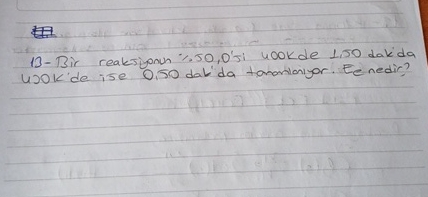 13-Bir reaksiyonun %50,0'si 400K de 1.50 dak'da
400K'de ise 0.50 dak'da tamamlanıyor. Ea nedir?